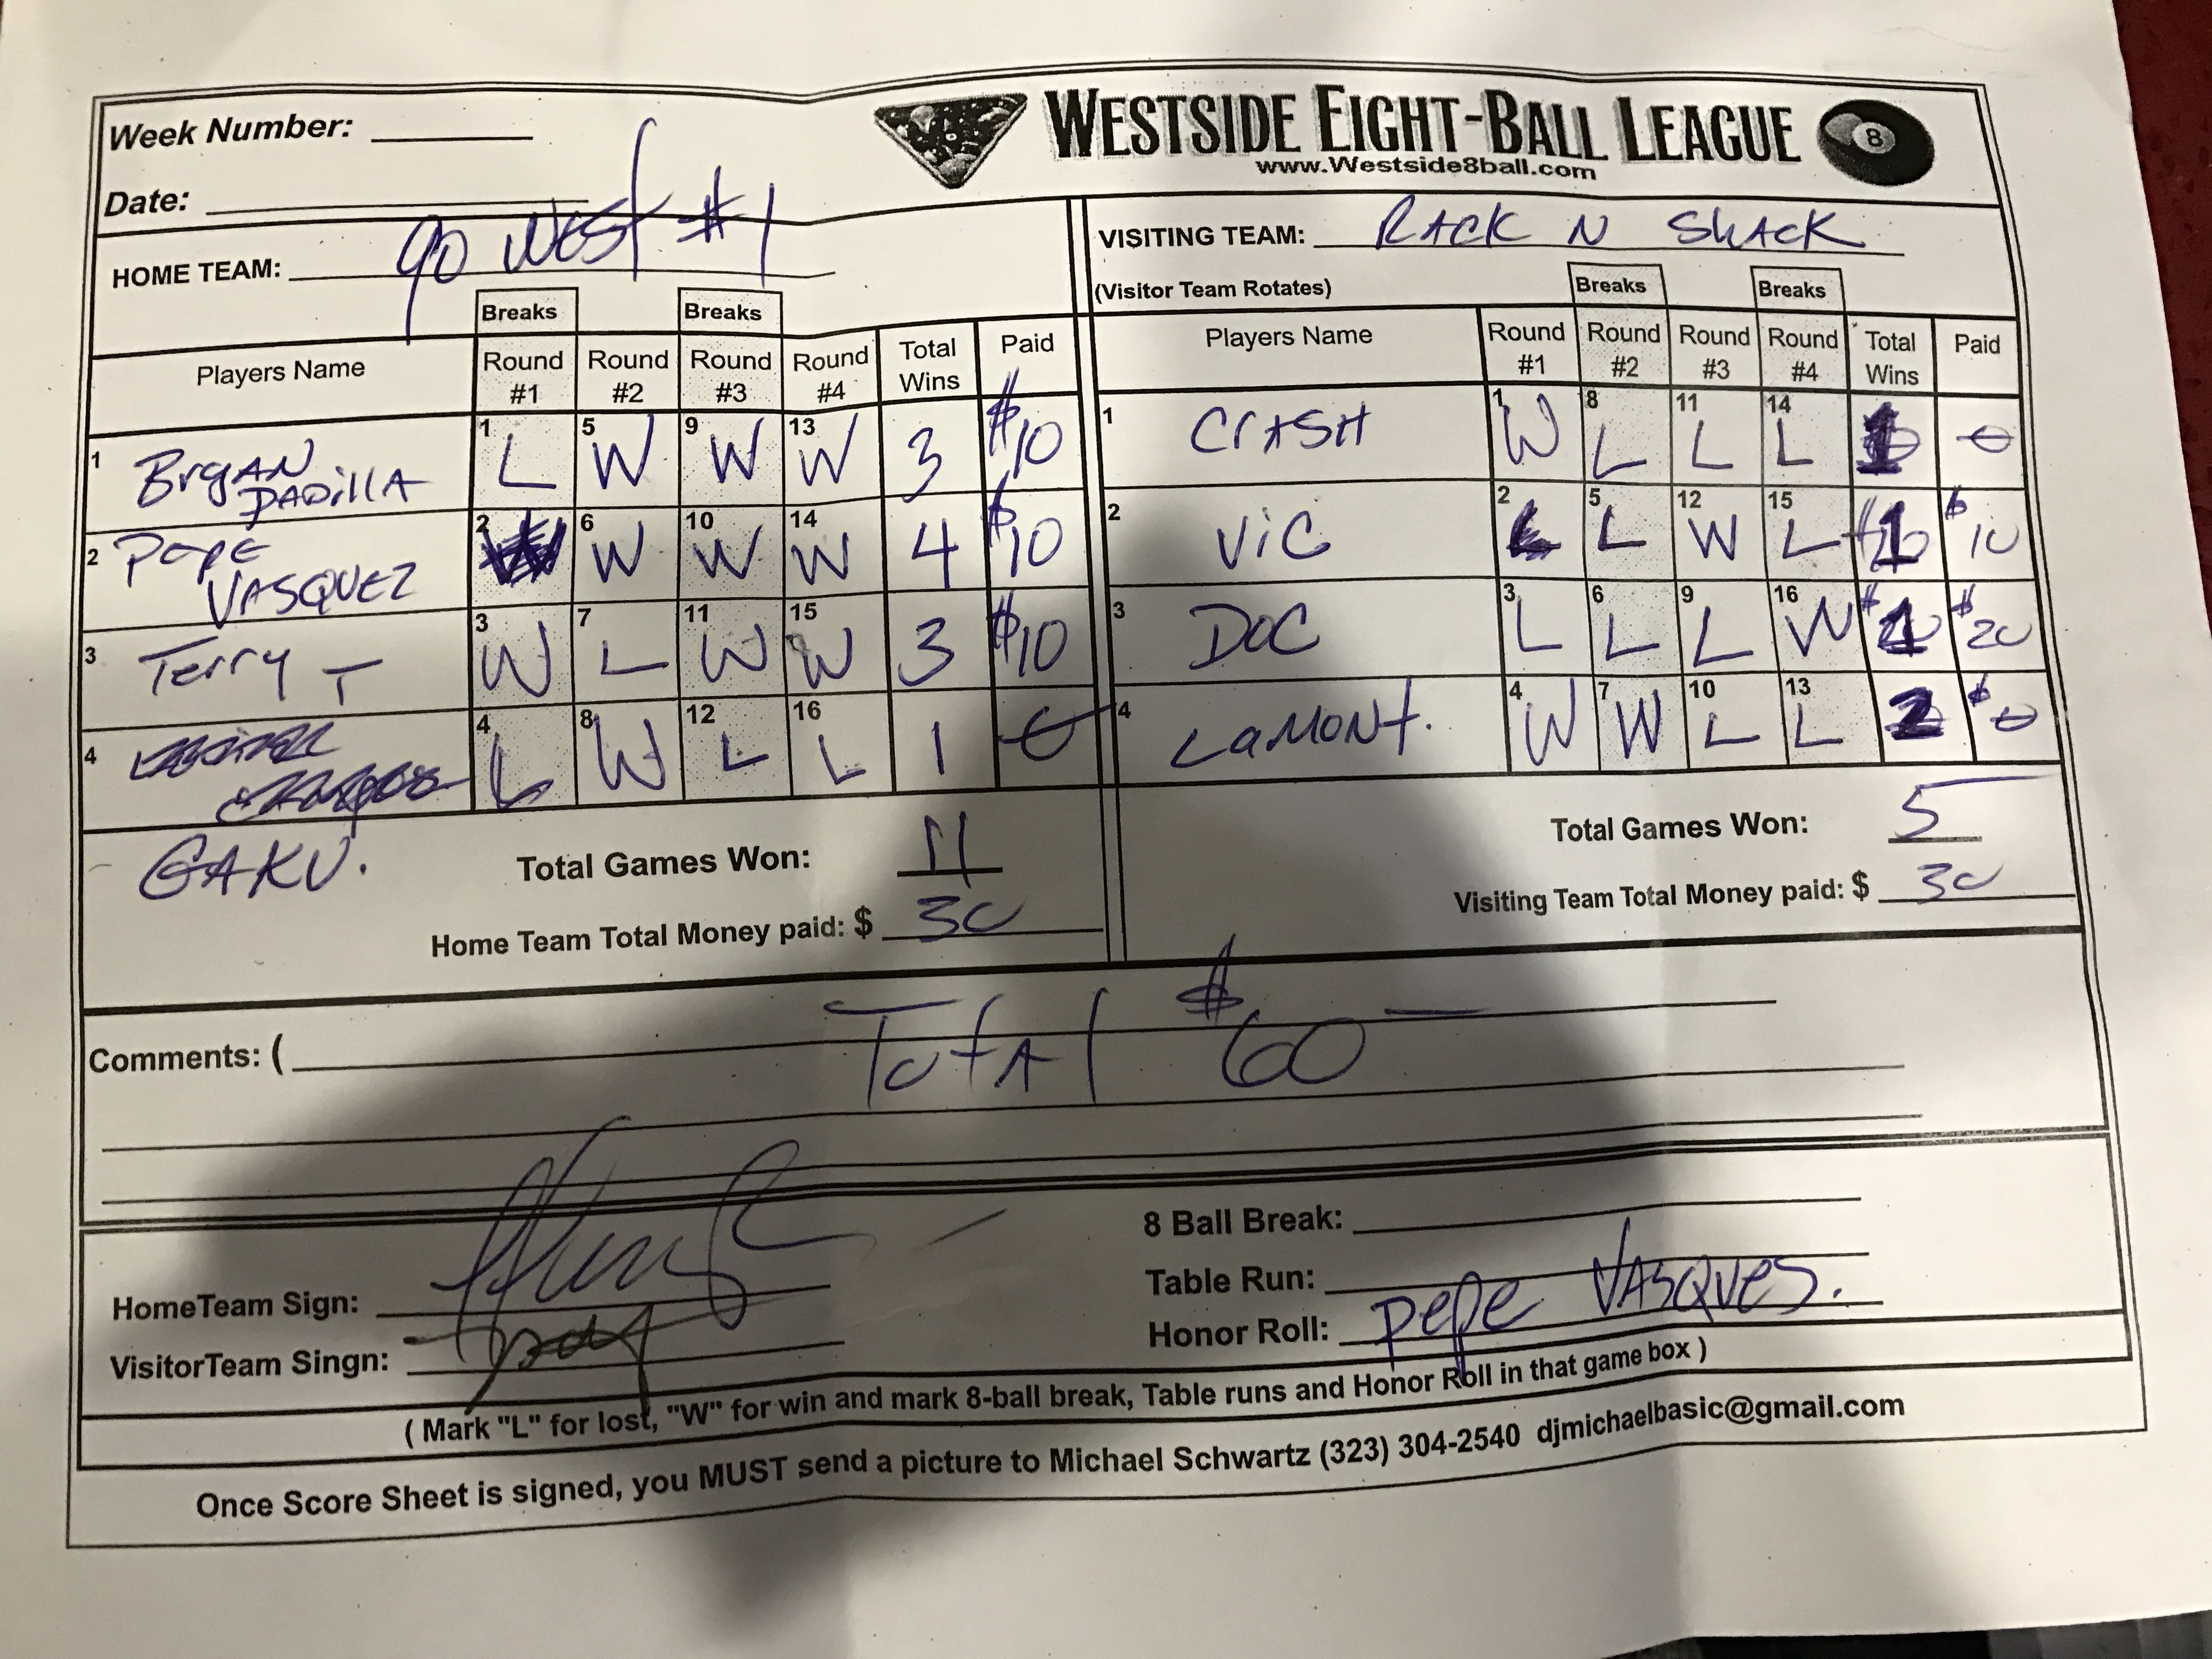 WESTSIDE EIGHT-BALL LEAGUE
8
www.Westside8ball.com
Week Number:
Date:
HOME TEAM: go west #1
VISITING TEAM: RACK N SHACK
(Visitor Team Rotates)
Breaks Breaks
Breaks Breaks
Players Name Round #1 Round #2 Round #3 Round #4 Total Wins Paid
1 BryAN PADillA 1 L 5 W 9 W 13 W 3 $10
2 PePE VASQUEZ 2 W 6 W 10 W 14 W 4 $10
3 Terry T 3 W 7 L 11 W 15 W 3 $10
4 4 L 8 W 12 L 16 L 1 0
GAKU.
Total Games Won: 11
Home Team Total Money paid: $ 30
Players Name Round #1 Round #2 Round #3 Round #4 Total Wins Paid
1 CrASH 1 W 8 L 11 L 14 L 1 0
2 ViC 2 L 5 L 12 W 15 L 1 $10
3 DOC 3 L 6 L 9 L 16 W 1 $20
4 LaMONt. 4 W 7 W 10 L 13 L 2 $0
Total Games Won: 5
Visiting Team Total Money paid: $ 30
Comments: ( TotAl $60
HomeTeam Sign:
VisitorTeam Singn:
8 Ball Break:
Table Run:
Honor Roll: pepe VASQUES.
( Mark "L" for lost, "W" for win and mark 8-ball break, Table runs and Honor Roll in that game box )
Once Score Sheet is signed, you MUST send a picture to Michael Schwartz (323) 304-2540 djmichaelbasic@gmail.com